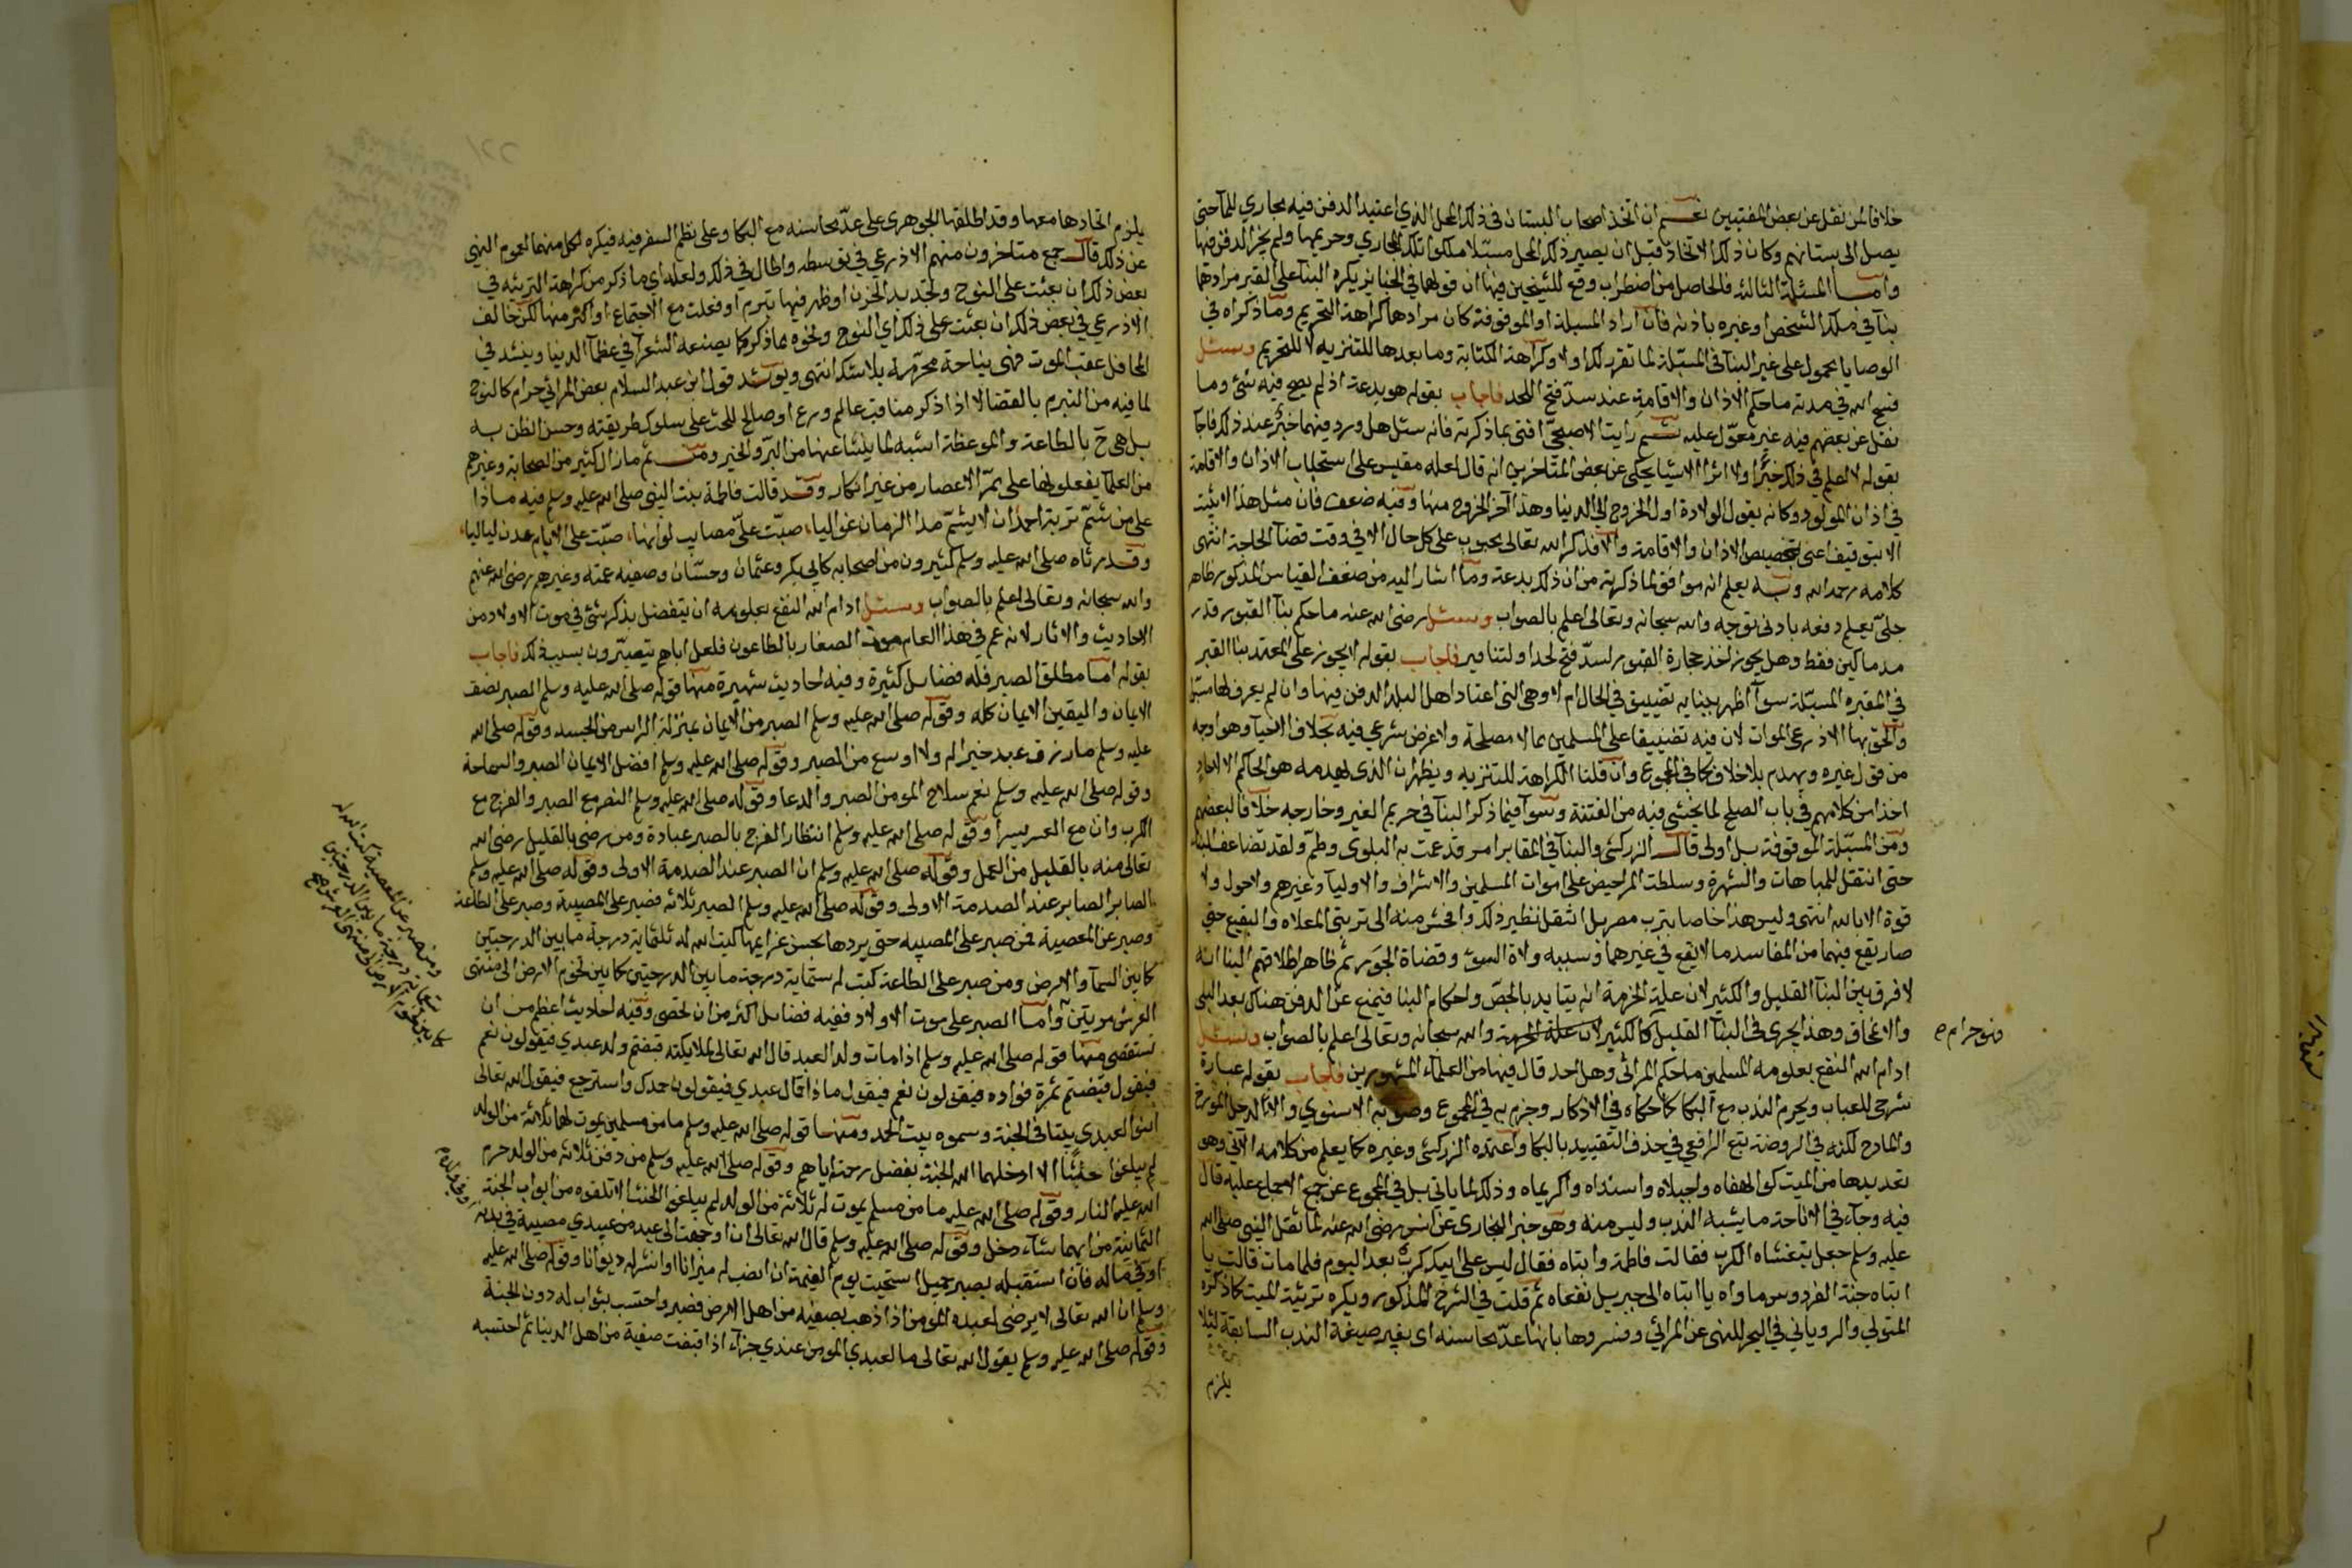 خلافا لمن نقل عن بعض المفتيين نعم ان اتخذ اصحاب البستان في ذلك المحل الذي اعتيد الدفن فيه مجاري للماحتى
يصل الى بستانهم وكان ذلك الاتخاذ قبل ان يصير ذلك المحل مسبلا ملكوا تلك المجاري وحريمها ولم يجز الدفن فيها
واما المسئلة الثالثة فالحاصل من اضطراب وقع للشيخين فيها ان قولهما في الجنايز يكره البنا على القبر مرادهما
بنا في ملك الشخص او غيره باذنه فان اراد المسبلة او الموقوفة كان مرادها كراهة التحريم وما ذكراه في
الوصايا محمول على غير البنا في المسبلة لما تقرر لكراولا وكراهة الكتابة وما بعدها للتنزيه لا للتحريم وسئل
فسح الله في مدته ما حكم الاذان والاقامة عند سدّ فتح اللحد فاجاب بقوله هو بدعة اذ لم يصح فيه شئ وما
نقل عن بعضهم فيه غير معوّل عليه ثم رايت الاصبحيّ افتى بما ذكرته فانه سئل هل ورد فيهما خبر عند ذلك فاجا
بقوله لا اعلم في ذلك خبرا ولا اثرا الا شيا يحكى عن بعض المتاخرين انه قال لعله مقيس على استحباب الاذان والاقامة
في اذن المولود وكانه يقول الولادة اول الخروج الى الدنيا وهذا آخر الخروج منها وفيه ضعف فان مثل هذا لا يثبت
الا بتوقيف اعني تخصيص الاذان والاقامة والا فذكر الله تعالى محبوب على كل حال الا في وقت قضآ الحاجة انتهى
كلامه رحمه الله وبه يعلم انه موافق لما ذكرته من ان ذلك بدعة وما اشار اليه من ضعف القياس المذكور ظاهر
جليّ يعلم دفعه بادنى توجه والله سبحانه وتعالى اعلم بالصواب وسئل رضى الله عنه ما حكم بنآ القبور قدر
مدماكين فقط وهل يجوز اخذ حجارة القبور لسدّ فتح لحد او لتنا فاجاب بقوله لا يجوز على المعتمد بنا القبر
في المقبره المسبّلة سوآ اظهر ببنايه تضييق في الحال ام لا وهي التي اعتاد اهل البلد الدفن فيها وان لم يعرف لها مسبّل
والحق بها الاذرعي الموات لان فيه تضييقا على المسلمين بما لا مصلحة ولا غرض شرعي فيه بخلاف الاحيآ وهو اوجه
من قول غيره ويهدم بلا خلاف كما في المجموع وان قلنا الكراهة للتنزيه ويظهران الذى يهدمه هو الحاكم لا الاحاد
اخذا من كلامهم في باب الصلح لما يخشى فيه من الفتنة وسوآ فيما ذكر البنآ في حريم القبر وخارجه خلافا لبعضهم
ومن المسبّلة الموقوفة بل اولى قال الزركشي والبنآ في المقابر امر قد عمت به البلوى وطمّ ولقد تضاعف البنا
حتى انتقل للمباهات والشهرة وسلطت المراحيض على اموات المسلمين والاشراف والاوليآ وغيرهم ولا حول ولا
قوة الا بالله انتهى وليس هذا خاصا بترب مصر بل انتقل نظير ذلك وافحش منه الى تربتي المعلاه والبقيع حتى
صار يقع فيهما من المفاسد ما لا يقع في غيرهما وسببه ولاة السوء وقضاة الجور ثم ظاهر اطلاقهم البنا انه
لا فرق بين البنآ القليل والكثير لان علة الحرمة انه يتابد بالجصّ واحكام البنا فيمنع عن الدفن هناك بعد البلى
والامحاق وهذا يجرى في البنآ القليل كالكثير والله سبحانه وتعالى اعلم بالصواب وسئل
فهو حرام
ادام الله النفع بعلومه المسلمين ما حكم المراثي وهل احد قال فيها من العلمآء المشهورين فاجاب بقوله عبارة
شرحي للعباب ويحرم الندب مع البكا كما حكاه في الاذكار وجزم به في المجموع وصوبه الاسنوي والا لدخل المورخ
والمادح لكنه في الروضة تبع الرافعي في حذف التقييد بالبكا واعتمده الزركشي وغيره كما يعلم من كلامه الآتي وهو
تعديدها من الميت كوا لهفاه واجبلاه واسنداه واكريماه وذلك لما ياتي بل في المجموع عن جمع الاجماع عليه قال
فيه وجآء في الاباحة ما يشبه الندب وليس منه وهو خبر البخاري عن انس رضى الله عنه لما ثقل النبي صلى الله
عليه وسلم جعل يتغشاه الكرب فقالت فاطمة وا ابتاه فقال ليس على ابيك كرب بعد اليوم فلما مات قالت يا
ابتاه جنة الفردوس ماواه يا ابتاه الى جبريل ننعاه ثم قلت في الشرح المذكور ويكره ترثية الميت كما ذكره
المتولي والروياني في البحر للنهى عن المراثي وفسروها بانها عدّ محاسنه اى بغير صيغة الندب السابقة لئلا
يلزم
يلزم اتحادها معها وقد اطلقها الجوهرى على عدّ محاسنه مع البكا وعلى نظم الشعر فيه فيكره لكل منهما لعموم النهي
عن ذلك قال جمع متاخرون منهم الاذرعي في توسطه واطال في ذلك ولعله اى ما ذكر من كراهة الترثيه في
بعض ذلك ان بعثت على النوح وتجديد الحزن او ظهر فيها تبرم او فعلت مع الاجتماع او اكثر منها لكن خالف
الاذرعي في بعض ذلك ان بعثت على ذلك اي النوح ونحوه مما ذكر كما يصنعه الشعرآ في عظمآ الدنيا وينشد في
المحافل عقب الموت فهي نياحة محرّمة بلا شك انتهى ويويد قول ابن عبد السلام بعض المراثي حرام كالنوح
لما فيه من التبرم بالقضا الا اذا ذكر مناقب عالم ورع او صالح للحث على سلوك طريقته وحسن الظن به
بل هي ح بالطاعة والموعظة اشبه لما ينشا عنها من البرّ والخير ومن ثم ما زال كثير من الصحابة وغيرهم
من العلمآ يفعلونها على ممرّ الاعصار من غير انكار وقد قالت فاطمة بنت النبي صلى الله عليه وسلم فيه ماذا
على من شمّ تربة احمد ان لا يشمّ مدا الزمان غواليا، صبّت عليّ مصايب لو انها، صبّت على الايام عدن لياليا،
وقد رثاه صلى الله عليه وسلم كثيرون من اصحابه كابي بكر وعثمان وحسّان وصفيه عمته وغيرهم رضى الله عنهم
والله سبحانه وتعالى اعلم بالصواب وسئل ادام الله النفع بعلومه ان يتفضل بذكر شئ في موت الاولاد من
الاحاديث والاثار لانه عم في هذا العام موت الصغار بالطاعون فلعل اباهم يتصبّرون بسبب ذلك فاجاب
بقوله اما مطلق الصبر فله فضايل كثيرة وفيه احاديث شهيرة منها قوله صلى الله عليه وسلم الصبر نصف
الايمان واليقين الايمان كله وقوله صلى الله عليه وسلم الصبر من الايمان بمنزلة الراس من الجسد وقوله صلى الله
عليه وسلم ما رزق عبد خيرا له ولا اوسع من الصبر وقوله صلى الله عليه وسلم افضل الايمان الصبر والسماحة
وقوله صلى الله عليه وسلم نعم سلاح المومن الصبر والدعا وقوله صلى الله عليه وسلم النصر مع الصبر والفرج مع
الكرب وان مع العسر يسرا وقوله صلى الله عليه وسلم انتظار الفرج بالصبر عبادة ومن رضى بالقليل رضى الله
تعالى منه بالقليل من العمل وقوله صلى الله عليه وسلم ان الصبر عند الصدمة الاولى وقوله صلى الله عليه وسلم
الصابر الصابر عند الصدمة الاولى وقوله صلى الله عليه وسلم الصبر ثلاثه فصبر على المصيبة وصبر على الطاعة
وصبر عن المعصية فمن صبر على المصيبه حتى يردها بحسن عزايها كتب الله له ثلثماية درجة ما بين الدرجتين
كما بين السمآ والارض ومن صبر على الطاعة كتبت له ستماية درجة ما بين الدرجتين كما بين تخوم الارض الى منتهى
ومن صبر عن المعصية كتب الله له
تسعماية درجة ما بين الدرجتين
كما بين تخوم الارض ومنتهى العرش صح
العرش مرتين واما الصبر على موت الاولاد ففيه فضايل اكثر من ان تحصى وفيه احاديث اعظم من ان
تستقصى منها قوله صلى الله عليه وسلم اذا مات ولد العبد قال الله تعالى لملايكته قبضتم ولد عبدي فيقولون نعم
فيقول قبضتم ثمرة فواده فيقولون نعم فيقول ماذا قال عبدي فيقولون حمدك واسترجع فيقول الله تعالى
ابنوا لعبدي بيتا في الجنة وسموه بيت الحمد ومنها قوله صلى الله عليه وسلم ما من مسلمين يموت لهما ثلاثة من الولد
لم يبلغوا حنثا الا ادخلهما الله الجنة بفضل رحمته اياهم وقوله صلى الله عليه وسلم من دفن ثلاثه من الولد حرم
الله عليه النار وقوله صلى الله عليه ما من مسلم يموت له ثلاثة من الولد لم يبلغوا الحنث الا تلقوه من ابواب الجنة
الثمانية من ايهما شآء دخل وقوله صلى الله عليه وسلم قال الله تعالى اذا وجهت الى عبد من عبيدي مصيبة في بدنه
او في ماله فان استقبله بصبر جميل استحيت يوم القيمة ان انصب له ميزانا او انشر له ديوانا وقوله صلى الله عليه
وسلم ان الله تعالى لا يرضى لعبده المومن اذا ذهب بصفيه من اهل الارض فصبر واحتسب بثواب له دون الجنة
وقوله صلى الله عليه وسلم يقول الله تعالى ما لعبدي المومن عندي جزآء اذا قبضت صفية من اهل الدنيا ثم احتسبه